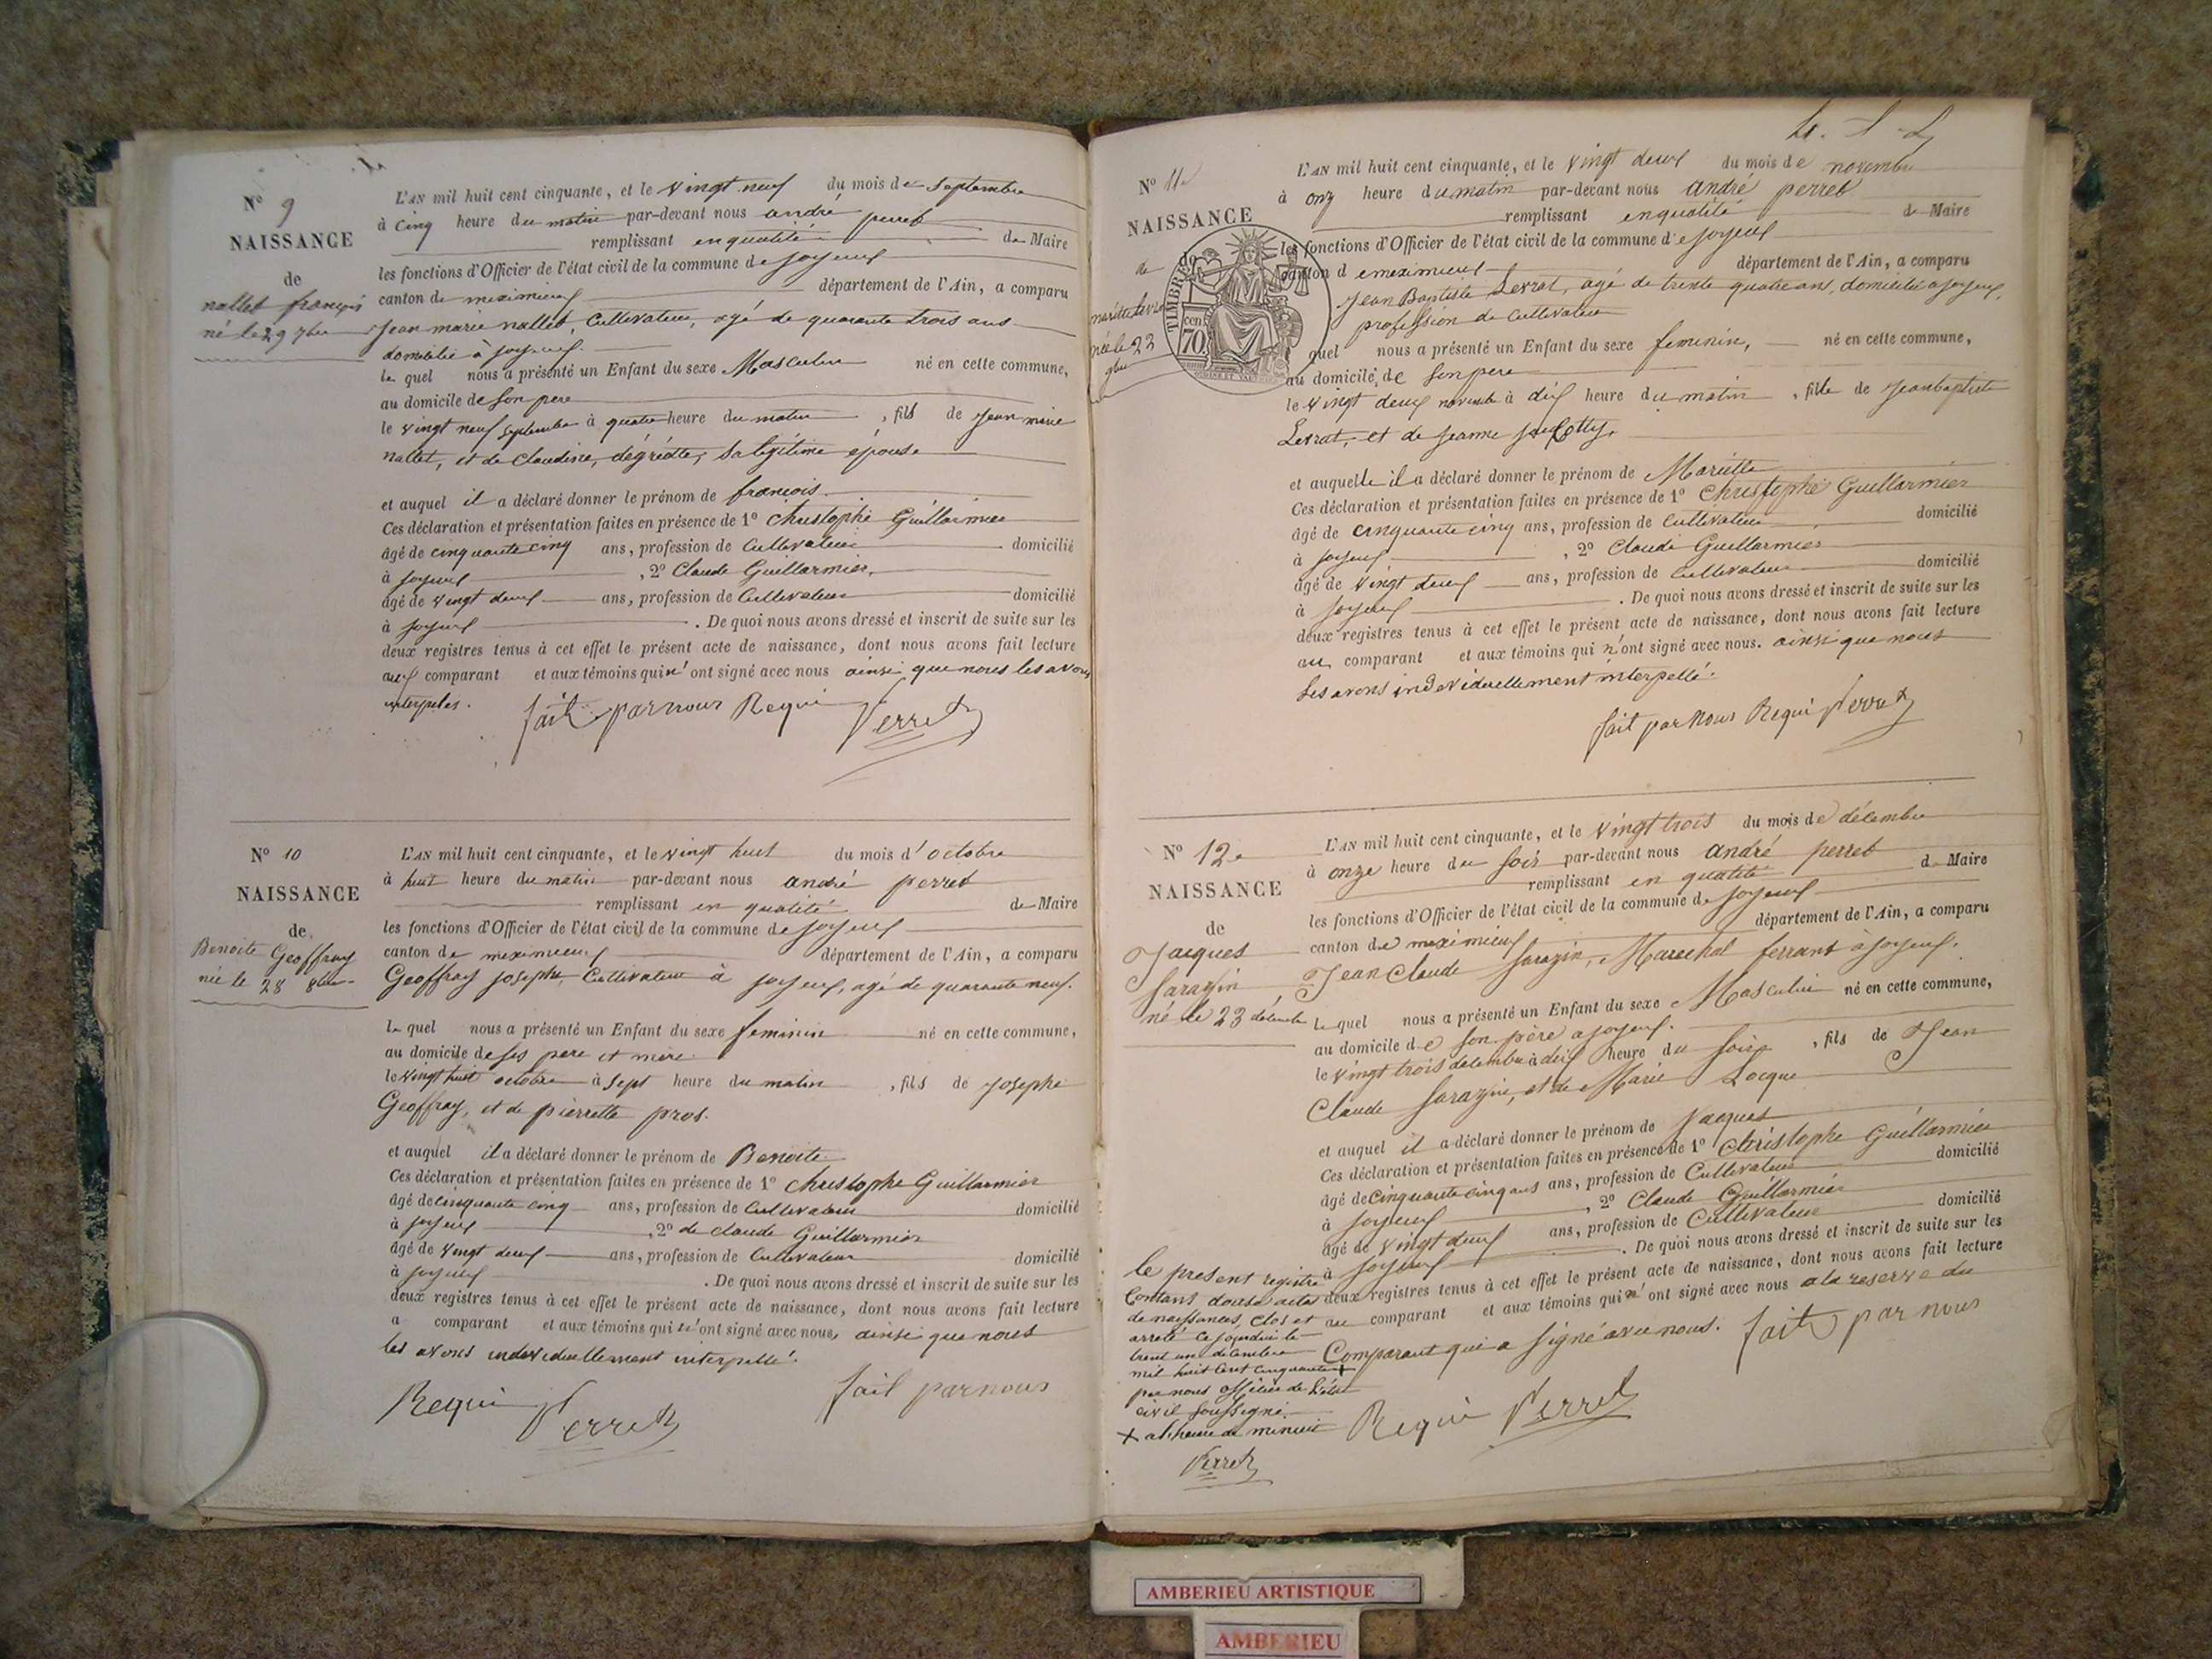 N° 9
NAISSANCE
de
nallet françois
né le 29 7bre
L'AN mil huit cent cinquante, et le vingt neuf du mois de septembre
à cinq heure du matin par-devant nous andré perret
remplissant en qualité de Maire
les fonctions d'Officier de l'état civil de la commune de joyeux
canton de meximieux département de l'Ain, a comparu
Jean marie nallet, Cultivateur, agé de quarante trois ans
domicilié à joyeux.
le quel nous a présenté un Enfant du sexe Masculin né en cette commune,
au domicile de son pere
le vingt neuf septembre à quatre heure du matin, fils de Jean marie
nallet, et de Claudine, dégrédtte, sa légitime épouse
et auquel il a déclaré donner le prénom de francois
Ces déclaration et présentation faites en présence de 1° christophe Guillarmier
âgé de cinquante cinq ans, profession de Cultivateur domicilié
à joyeux, 2° Claude Guillarmier,
âgé de vingt deux ans, profession de Cultivateur domicilié
à joyeux. De quoi nous avons dressé et inscrit de suite sur les
deux registres tenus à cet effet le présent acte de naissance, dont nous avons fait lecture
aux comparant et aux témoins qui n'ont signé avec nous ainsi que nous les avons
interpelés. fait par nous Requi Perret
N° 10
NAISSANCE
de
Benoite Geoffray
née le 28 8bre
L'AN mil huit cent cinquante, et le vingt huit du mois d'octobre
à huit heure du matin par-devant nous andré perret
remplissant en qualité de Maire
les fonctions d'Officier de l'état civil de la commune de joyeux
canton de meximieux département de l'Ain, a comparu
Geoffray josephe, Cultivateur à joyeux, agé de quarante neuf.
le quel nous a présenté un Enfant du sexe feminin né en cette commune,
au domicile de ses pere et mere
le vingt huit octobre à sept heure du matin, fils de josephe
Geoffray, et de pierrette pros.
et auquel il a déclaré donner le prénom de Benoite
Ces déclaration et présentation faites en présence de 1° christophe Guillarmier
âgé de cinquante cinq ans, profession de Cultivateur domicilié
à joyeux, 2° de claude Guillarmier
âgé de vingt deux ans, profession de Cultivateur domicilié
à joyeux. De quoi nous avons dressé et inscrit de suite sur les
deux registres tenus à cet effet le présent acte de naissance, dont nous avons fait lecture
a comparant et aux témoins qui n'ont signé avec nous, ainsi que nous
les avons individuellement interpellé.
fait par nous
Requi Perret
N° 11
NAISSANCE
de
mariette Levrat
née le 22
9bre
TIMBRE
cen.
70.
L'AN mil huit cent cinquante, et le vingt deux du mois de novembre
à onz heure du matin par-devant nous andré perret
remplissant en qualité de Maire
les fonctions d'Officier de l'état civil de la commune de joyeux
canton d e meximieux département de l'Ain, a comparu
Jean Baptiste Levrat, agé de trente quatre ans, domicilié a joyeux,
profession de cultivateur
quel nous a présenté un Enfant du sexe feminin, né en cette commune,
au domicile de son pere
le vingt deux novembre à dix heure du matin, fille de Jean baptiste
Levrat, et de jeanne
et auquelle il a déclaré donner le prénom de Mariette
Ces déclaration et présentation faites en présence de 1° Christophe Guillarmier
âgé de cinquante cinq ans, profession de Cultivateur domicilié
à joyeux, 2° Claude Guillarmier
âgé de vingt deux ans, profession de Cultivateur domicilié
à joyeux. De quoi nous avons dressé et inscrit de suite sur les
deux registres tenus à cet effet le présent acte de naissance, dont nous avons fait lecture
au comparant et aux témoins qui n'ont signé avec nous. ainsi que nous
Les avons individuellement interpellé.
fait par nous Requi Perret
N° 12
NAISSANCE
de
Jacques
Sarazin
né le 23 décembre
L'AN mil huit cent cinquante, et le vingt trois du mois de décembre
à onze heure du soir par-devant nous andré perret
remplissant en qualité de Maire
les fonctions d'Officier de l'état civil de la commune de joyeux
canton de meximieux département de l'Ain, a comparu
Jean Claude Sarazin, Marechal ferrant à joyeux.
le quel nous a présenté un Enfant du sexe Masculin né en cette commune,
au domicile de son père a joyeux.
le vingt trois décembre à dix heure du soir, fils de Jean
Claude Sarazin, et de Marie Locque
et auquel il a déclaré donner le prénom de Jacques
Ces déclaration et présentation faites en présence de 1° Christophe Guillarmier
âgé de cinquante cinq ans ans, profession de Cultivateur domicilié
à joyeux, 2° Claude Guillarmier
âgé de vingt deux ans, profession de Cultivateur domicilié
à joyeux. De quoi nous avons dressé et inscrit de suite sur les
deux registres tenus à cet effet le présent acte de naissance, dont nous avons fait lecture
au comparant et aux témoins qui n'ont signé avec nous a la reserve du
Comparant qui a signé avec nous. fait par nous
Requi Perret
le present registre
Contans douse actes
de naissances, Clos et
arreté ce jourdui le
trent un décembre
mil huit Cent cinquante +
par nous officier de l'état
civil soussigné
+ a l'heure de minuit
Perret
AMBERIEU ARTISTIQUE
AMBERIEU